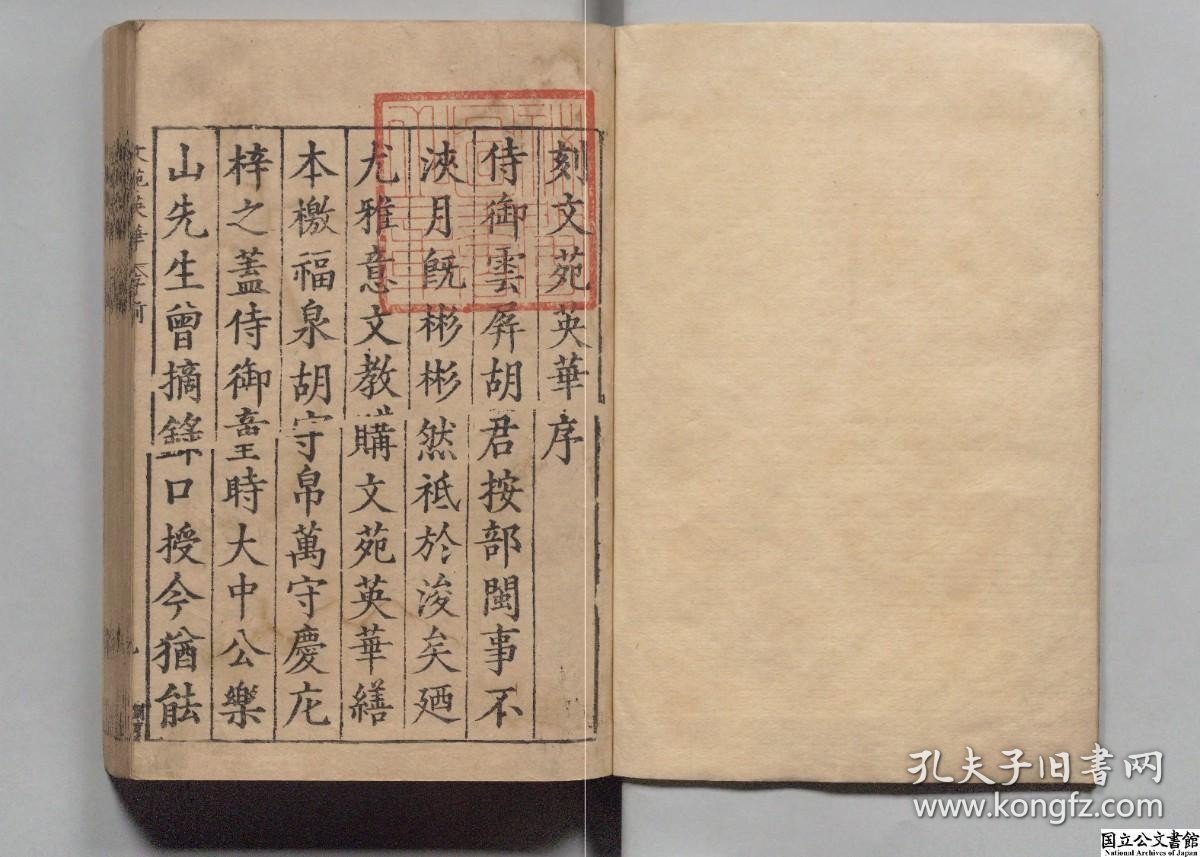 刻文苑英華序
侍御雲屏胡君按部閩事不
浹月旣彬彬然祗於浚矣廼
尤雅意文教購文苑英華繕
本檄福泉胡守帛萬守慶庀
梓之蓋侍御童時大中公樂
山先生曾摘錄口授今猶能
文苑英華
孔夫子旧书网
www.kongfz.com
国立公文書館
National Archives of Japan